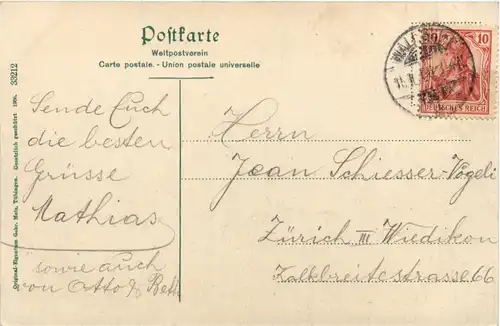 Postkarte
Weltpostverein
Carte postale. - Union postale universelle
33212
Original-Eigentum Gebr. Metz, Tübingen. Gesetzlich geschützt 1905.
10
DEUTSCHES REICH
Sende Euch
die besten
Grüsse
Mathias
sowie auch
von Otto & Beth
Herrn
Jean Schiesser-Vögeli
Zürich III Wiedikon
Kalkbreitestrasse 66